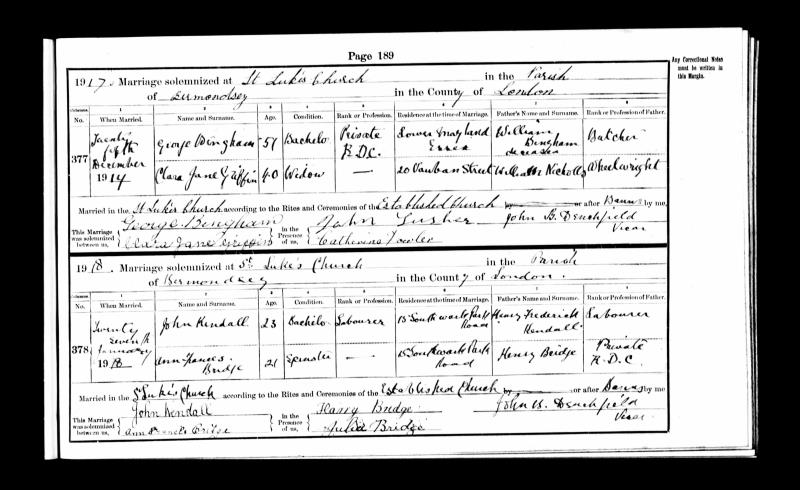 Page 189
Any Correctional Notes
must be written in
this Margin.
1917. Marriage solemnized at St Luke's Church in the Parish
of Bermondsey in the County of London
Columns. 1 2 3 4 5 6 7 8
No. When Married. Name and Surname. Age. Condition. Rank or Profession. Residence at the time of Marriage. Father's Name and Surname. Rank or Profession of Father.
377 Twenty fifth December 1917 George Bingham 51 Bachelor Private R.D.C. Lower Essex William Bingham deceased Butcher
Clara Jane Griffin 40 Widow — 20 Vauban Street William Nicholls Wheelwright
Married in the St Luke's Church according to the Rites and Ceremonies of the Established Church by or after Banns by me,
This Marriage was solemnized between us, George Bingham in the Presence of us, John Lusher John B. Denchfield
Clara Jane Griffin Catherine Fowler Vicar
1918. Marriage solemnized at St Luke's Church in the Parish
of Bermondsey in the County of London.
Columns. 1 2 3 4 5 6 7 8
No. When Married. Name and Surname. Age. Condition. Rank or Profession. Residence at the time of Marriage. Father's Name and Surname. Rank or Profession of Father.
378 Twenty seventh January 1918 John Kendall 23 Bachelor Labourer 15 Southwark Park Road Henry Frederick Kendall Labourer
Ann Frances Bridge 21 Spinster — 15 Southwark Park Road Henry Bridge Private R.D.C.
Married in the St Luke's Church according to the Rites and Ceremonies of the Established Church by or after Banns by me
This Marriage was solemnized between us, John Kendall In the Presence of us, Harry Bridge John B. Denchfield
Ann Frances Bridge Julia Bridge Vicar